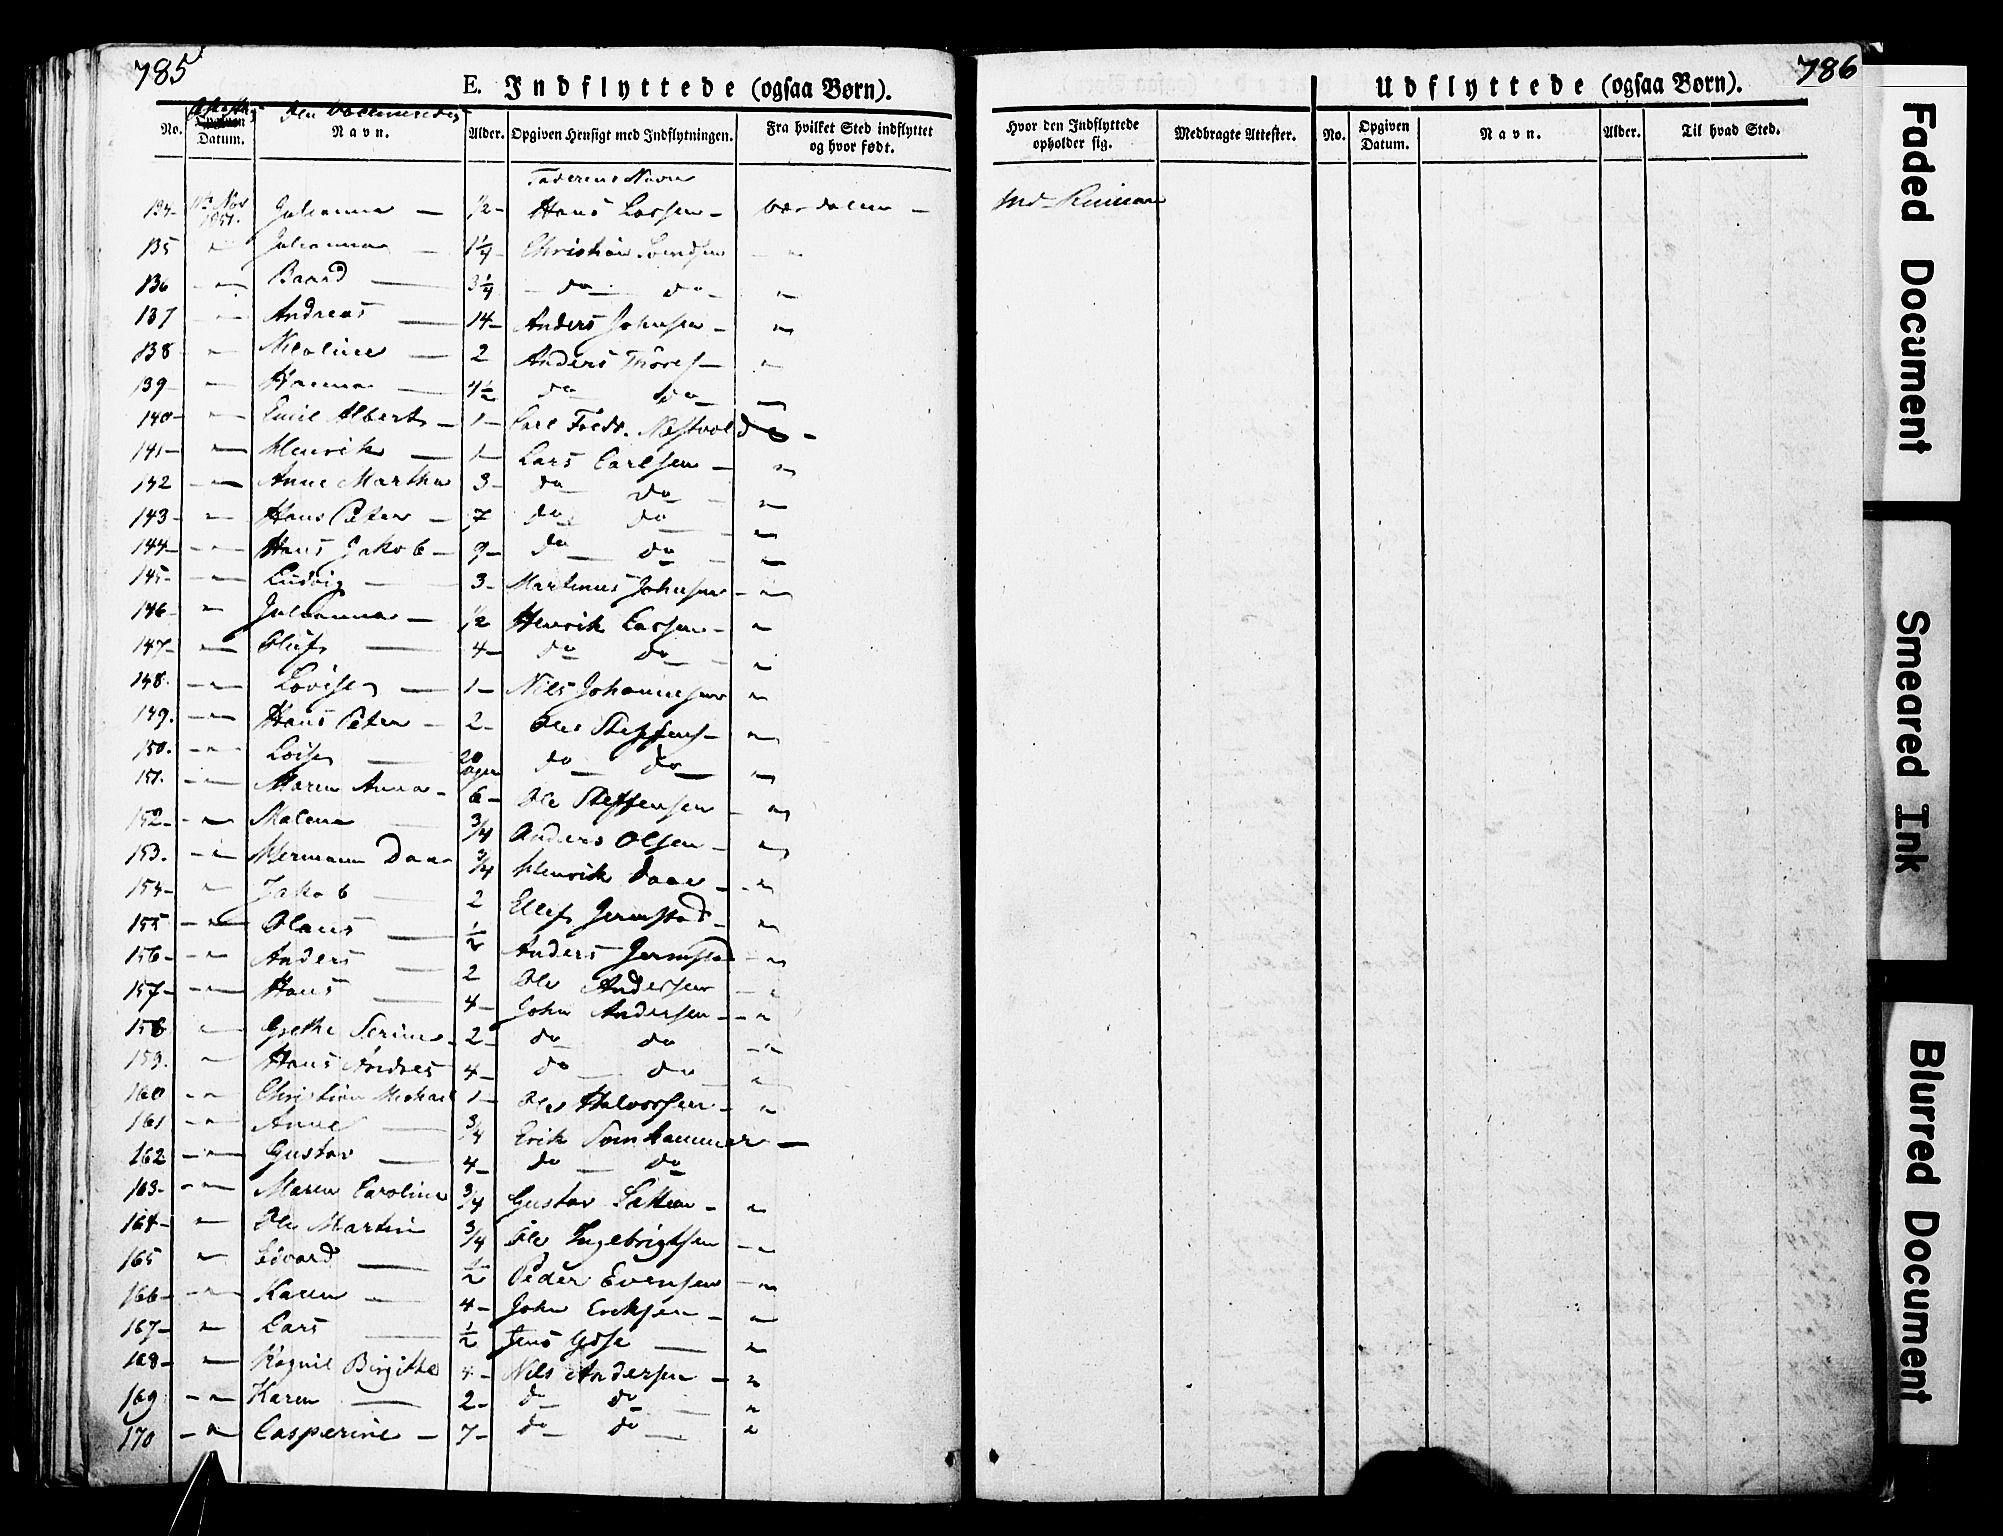 785
E. Indflyttede (ogsaa Børn).
Udflyttede (ogsaa Børn).
786
No. Datum. Den Vaccineredes Navn. Alder. Opgiven Hensigt med Indflytningen. Fra hvilket Sted indflyttet og hvor født.
Hvor den Indflyttede opholder sig. Medbragte Attester. No. Opgiven Datum. Navn. Alder. Til hvad Sted.
Faderens Navn
134- Nov 1851. Julianna — 1/2- Hans Larsen- Værdalen -
135 " Johanna - 1 1/4- Christian Svendsen "
136 " Baard — 3 1/4 do do "
137 " Andreas — 14- Anders Johnsen- "
138 " Nicoline — 2 Anders Thores- "
139- " Hanna — 4 1/2 do do "
140- " Emil Albert- 1- Carl Fredr. Næstvold
141- " Henrik — 1- Lars Carlsen- "
142 " Anne Martha 3- do do "
143- " Hans Peter - 7 do do "
144- " Hans Jakob- 9- do do "
145- " Ludvig — 3- Martinus Johnsen- "
146- " Julianna- 1/2 Henrik Larsen- "
147- " Oluf — 4- do do "
148. " Lovise — 1- Niels Johannesen "
149. " Hans Peter - 2- Ole Steffens- "
150. " Lovise — 20 Uger do do "
151. " Maren Anna- 6- Ole Steffensen "
152- " Malena 3/4 Anders Olsen- "
153. " Hermann Daae 3/4 Henrik Daae- "
154- " Jakob — 2 Ellef Jermstad- "
155 " Olaus — 1/2 Anders Jermstad "
156- " Anders — 2 Ole Andersen "
157- " Hans — 4- John Andersen- "
158 " Grethe Serine- 2- do do "
159. " Hans Andreas 4- do do "
160 " Christian Michael 1- Ole Halvorsen- "
161 " Anne — 3/4 Erik Svinhammer -
162 " Gustav — 4- do do
163- " Maren Caroline 3/4 Gustav - "
164- " Ole Martin 3/4 Ole Ingebrigtsen "
165 " Edvard — 1/2 Peder Evensen "
166- " Karen - 4- John Ericksen - "
167- " Lars — 1/2 Jens — "
168- " Birgitha Nils Andersen - "
169 " Karen — 2- do do "
170 " Casperine - 7- do do "
Faded Document
Smeared Ink
Blurred Document